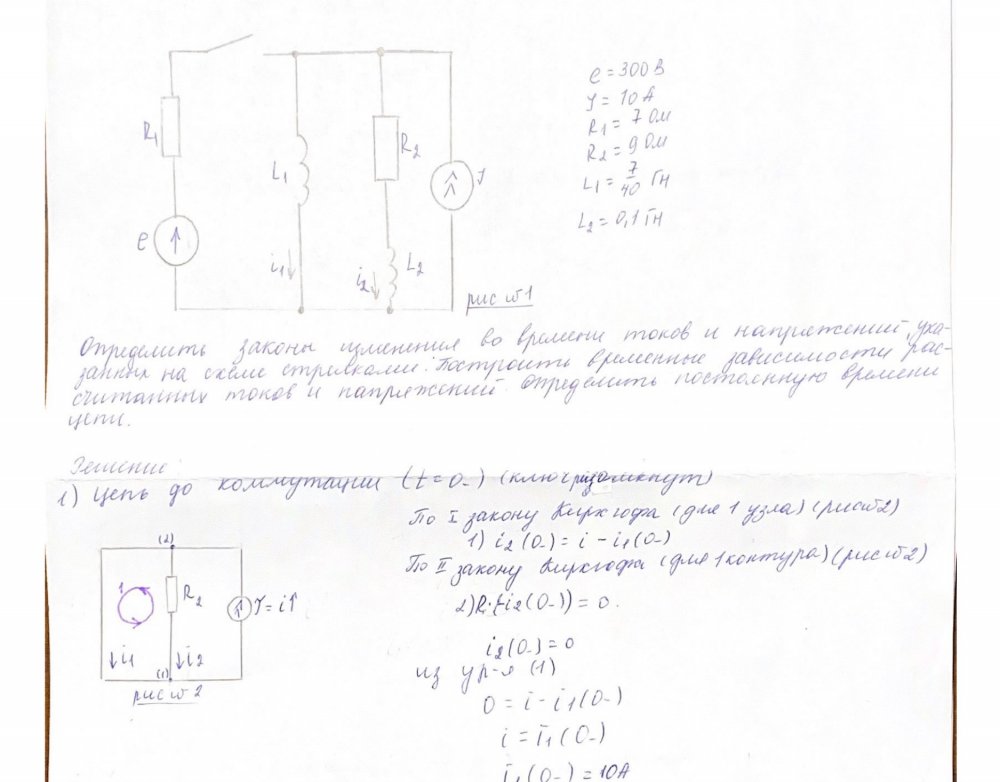 R₁
e
L₁
i₁
R₂
i₂
L₂
J
рис №1
e = 300 В
J = 10 А
R₁ = 7 Ом
R₂ = 9 Ом
L₁ = 7/40 Гн
L₂ = 0,1 Гн
Определить законы изменения во времени токов и напряжений, ука-
занных на схеме стрелками. Построить временные зависимости рас-
считанных токов и напряжений. Определить постоянную времени
цепи.
Решение:
1) Цепь до коммутации (t = 0₋) (ключ разомкнут)
По I закону Кирхгофа (для 1 узла) (рис №2)
1) i₂(0₋) = i - i₁(0₋)
По II закону Кирхгофа (для 1 контура) (рис №2)
2) R·(-i₂(0₋)) = 0.
i₂(0₋) = 0
из ур-я (1)
0 = i - i₁(0₋)
i = i₁(0₋)
i₁(0₋) = 10А
(2)
1
R₂
J = i↑
↓i₁
↓i₂
(1)
рис №2